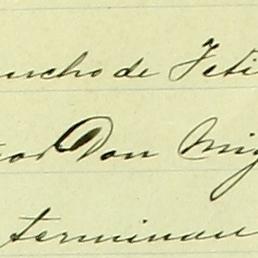 ucho de Feti
or Don Mig
terminan